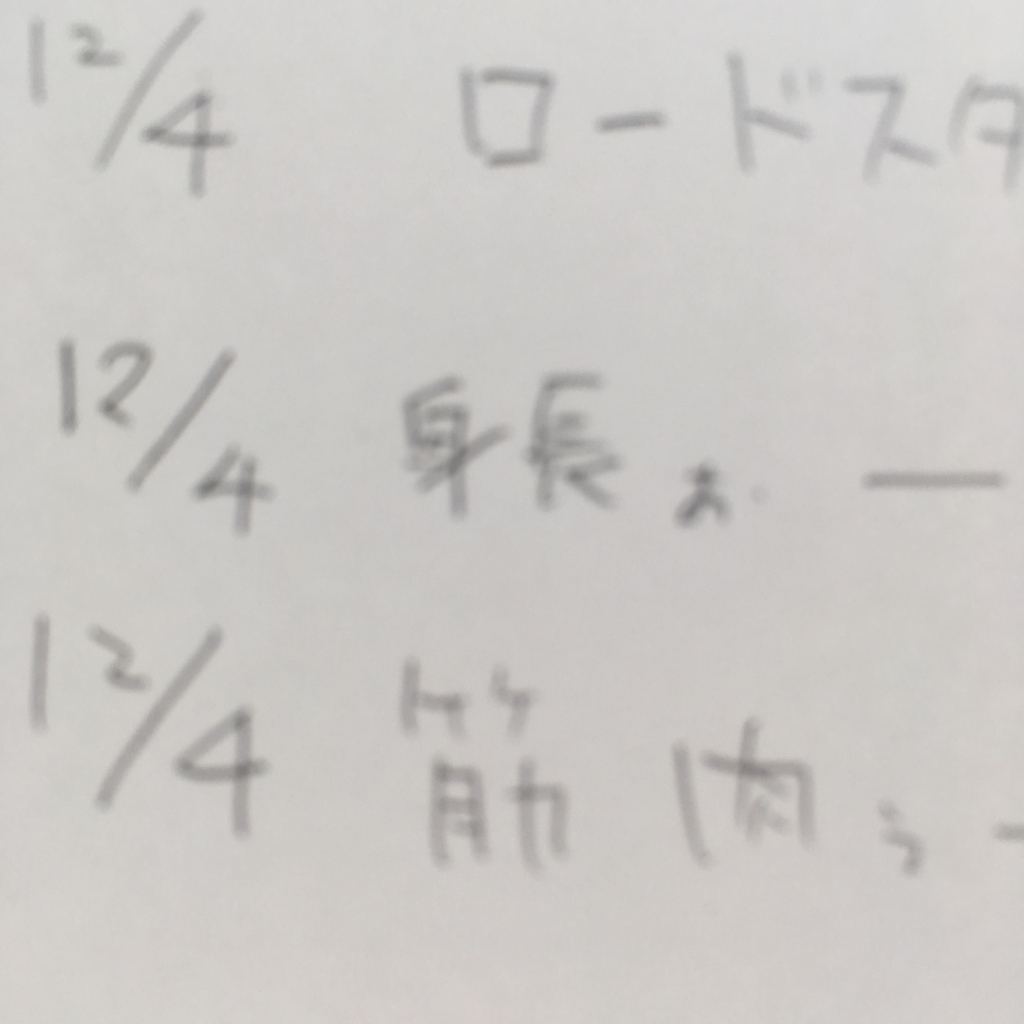 12/4 ロードスタ
12/4 身長
12/4 筋肉